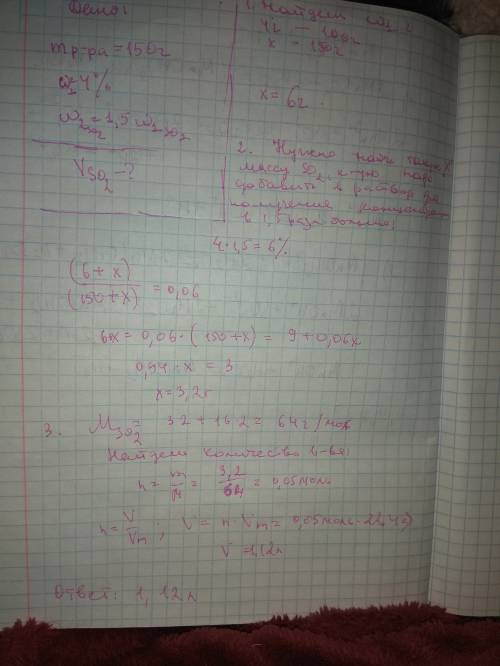 Дано:
m р-ра = 150г
ω₁ = 4%
ω₂ SO₂ = 1,5 ω₁ SO₂
V SO₂ - ?
1. Найдем ω₁
4г — 100г
x — 150г
x = 6г.
2. Нужно найти такую
массу SO₂, к-рую надо
добавить в раствор для
получения концентрации
в 1,5 раза больше:
4·1,5 = 6%
(6 + x)
(150 + x) = 0,06
6+x = 0,06·(150+x) = 9 + 0,06x
0,94·x = 3
x = 3,2г
3. M SO₂ = 32 + 16·2 = 64 г/моль
Найдем количество в-ва:
n = m/M = 3,2/64 = 0,05 моль
n = V/Vm ; V = n·Vm = 0,05 моль·22,4
V = 1,12л
Ответ: 1,12л